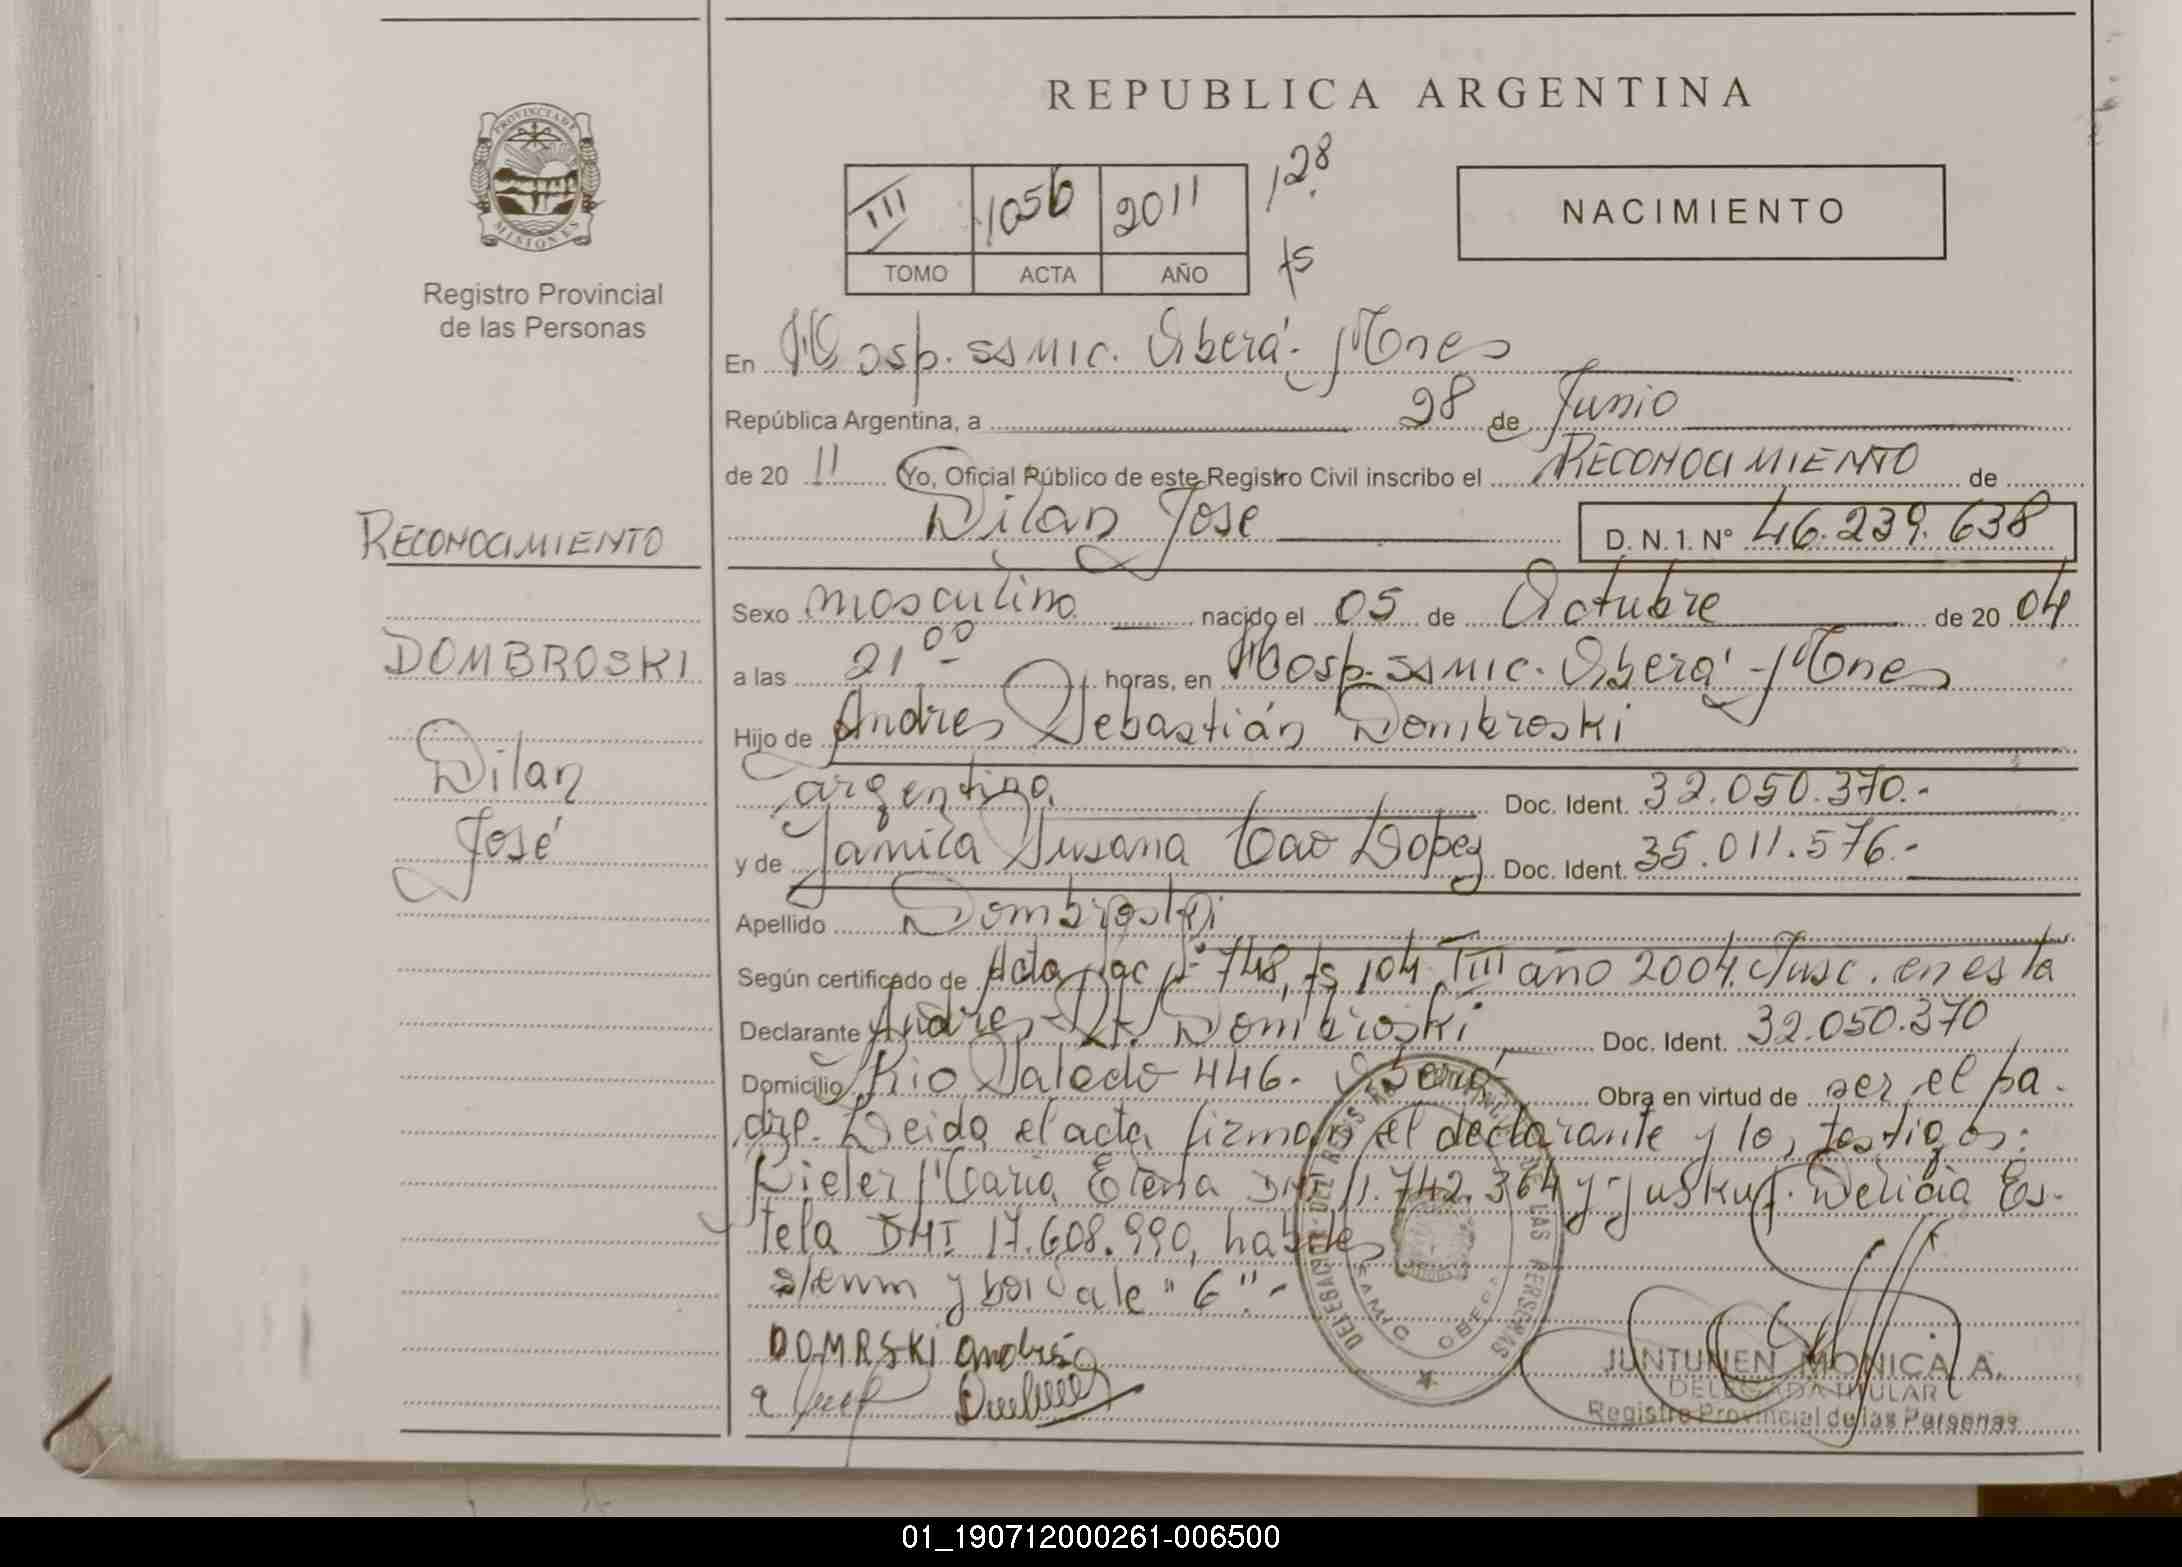 REPUBLICA ARGENTINA
PROVINCIA DE
MISIONES
Registro Provincial
de las Personas
III 1056 2011 128
TOMO ACTA AÑO fs
NACIMIENTO
En Hosp. SSMIC. Oberá - Mnes
República Argentina, a 28 de Junio
de 20 11 Yo, Oficial Público de este Registro Civil inscribo el RECONOCIMIENTO de
Dilan Jose D.N.I. Nº 46.239.638
RECONOCIMIENTO
DOMBROSKI
Dilan
José
Sexo masculino nacido el 05 de Octubre de 20 04
a las 21 00 horas, en Hosp. SSMIC. Oberá - Mnes
Hijo de Andres Sebastián Dombroski
argentino Doc. Ident. 32.050.370.-
y de Yamila Susana Lopez Doc. Ident. 35.011.576.-
Apellido Dombroski
Según certificado de Acta Nac Nº 748, fs 104 T III año 2004. Insc. en esta
Declarante Andres S. Dombroski Doc. Ident. 32.050.370
Domicilio Rio Salado 446. Oberá Obra en virtud de ser el pa-
dre. Leida el acta firman el declarante y los testigos:
Maria Elena DNI 11.742.364 y Delicia Es-
tela DNI 17.608.990, habiles
y vale "6".-
DOMRSKI andrés
DELEGACION DEL REGISTRO PROVINCIAL DE LAS PERSONAS
SAMIC OBERA
JUNTUNEN MONICA A.
DELEGADA TITULAR
Registro Provincial de las Personas
01_190712000261-006500